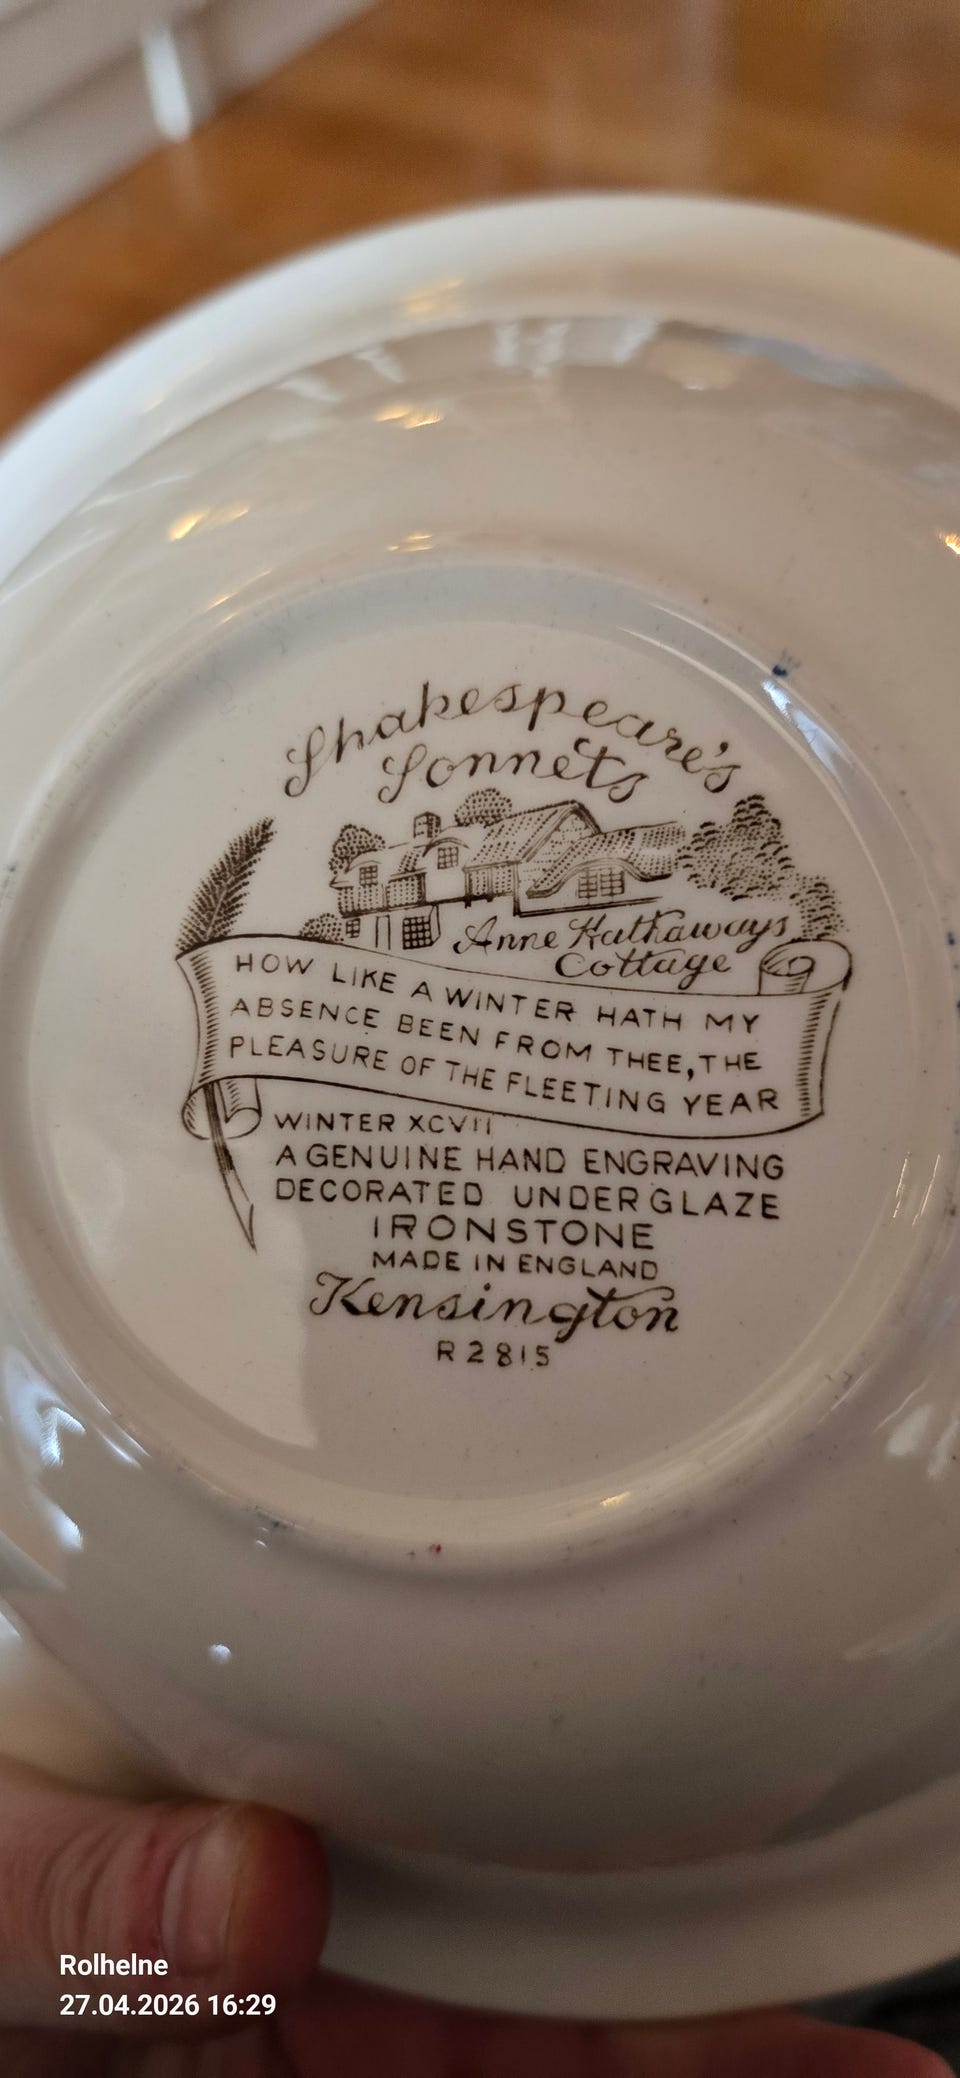 Shakespeare's
Sonnets
Anne Hathaways
Cottage
HOW LIKE A WINTER HATH MY
ABSENCE BEEN FROM THEE, THE
PLEASURE OF THE FLEETING YEAR
WINTER XCVII
A GENUINE HAND ENGRAVING
DECORATED UNDERGLAZE
IRONSTONE
MADE IN ENGLAND
Kensington
R 2815
Rolhelne
27.04.2026 16:29